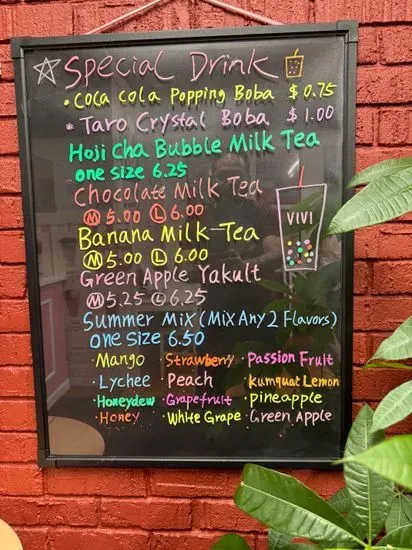 Special Drink
• Coca Cola Popping Boba $0.75
* Taro Crystal Boba $1.00
Hoji Cha Bubble Milk Tea
one size 6.25
Chocolate Milk Tea
M 5.00 L 6.00
Banana Milk-Tea
M 5.00 L 6.00
Green Apple Yakult
M 5.25 L 6.25
VIVI
Summer Mix (Mix Any 2 Flavors)
one size 6.50
• Mango • Strawberry • Passion Fruit
• Lychee • Peach • Kumquat Lemon
• Honeydew • Grapefruit • pineapple
• Honey • White Grape • Green Apple